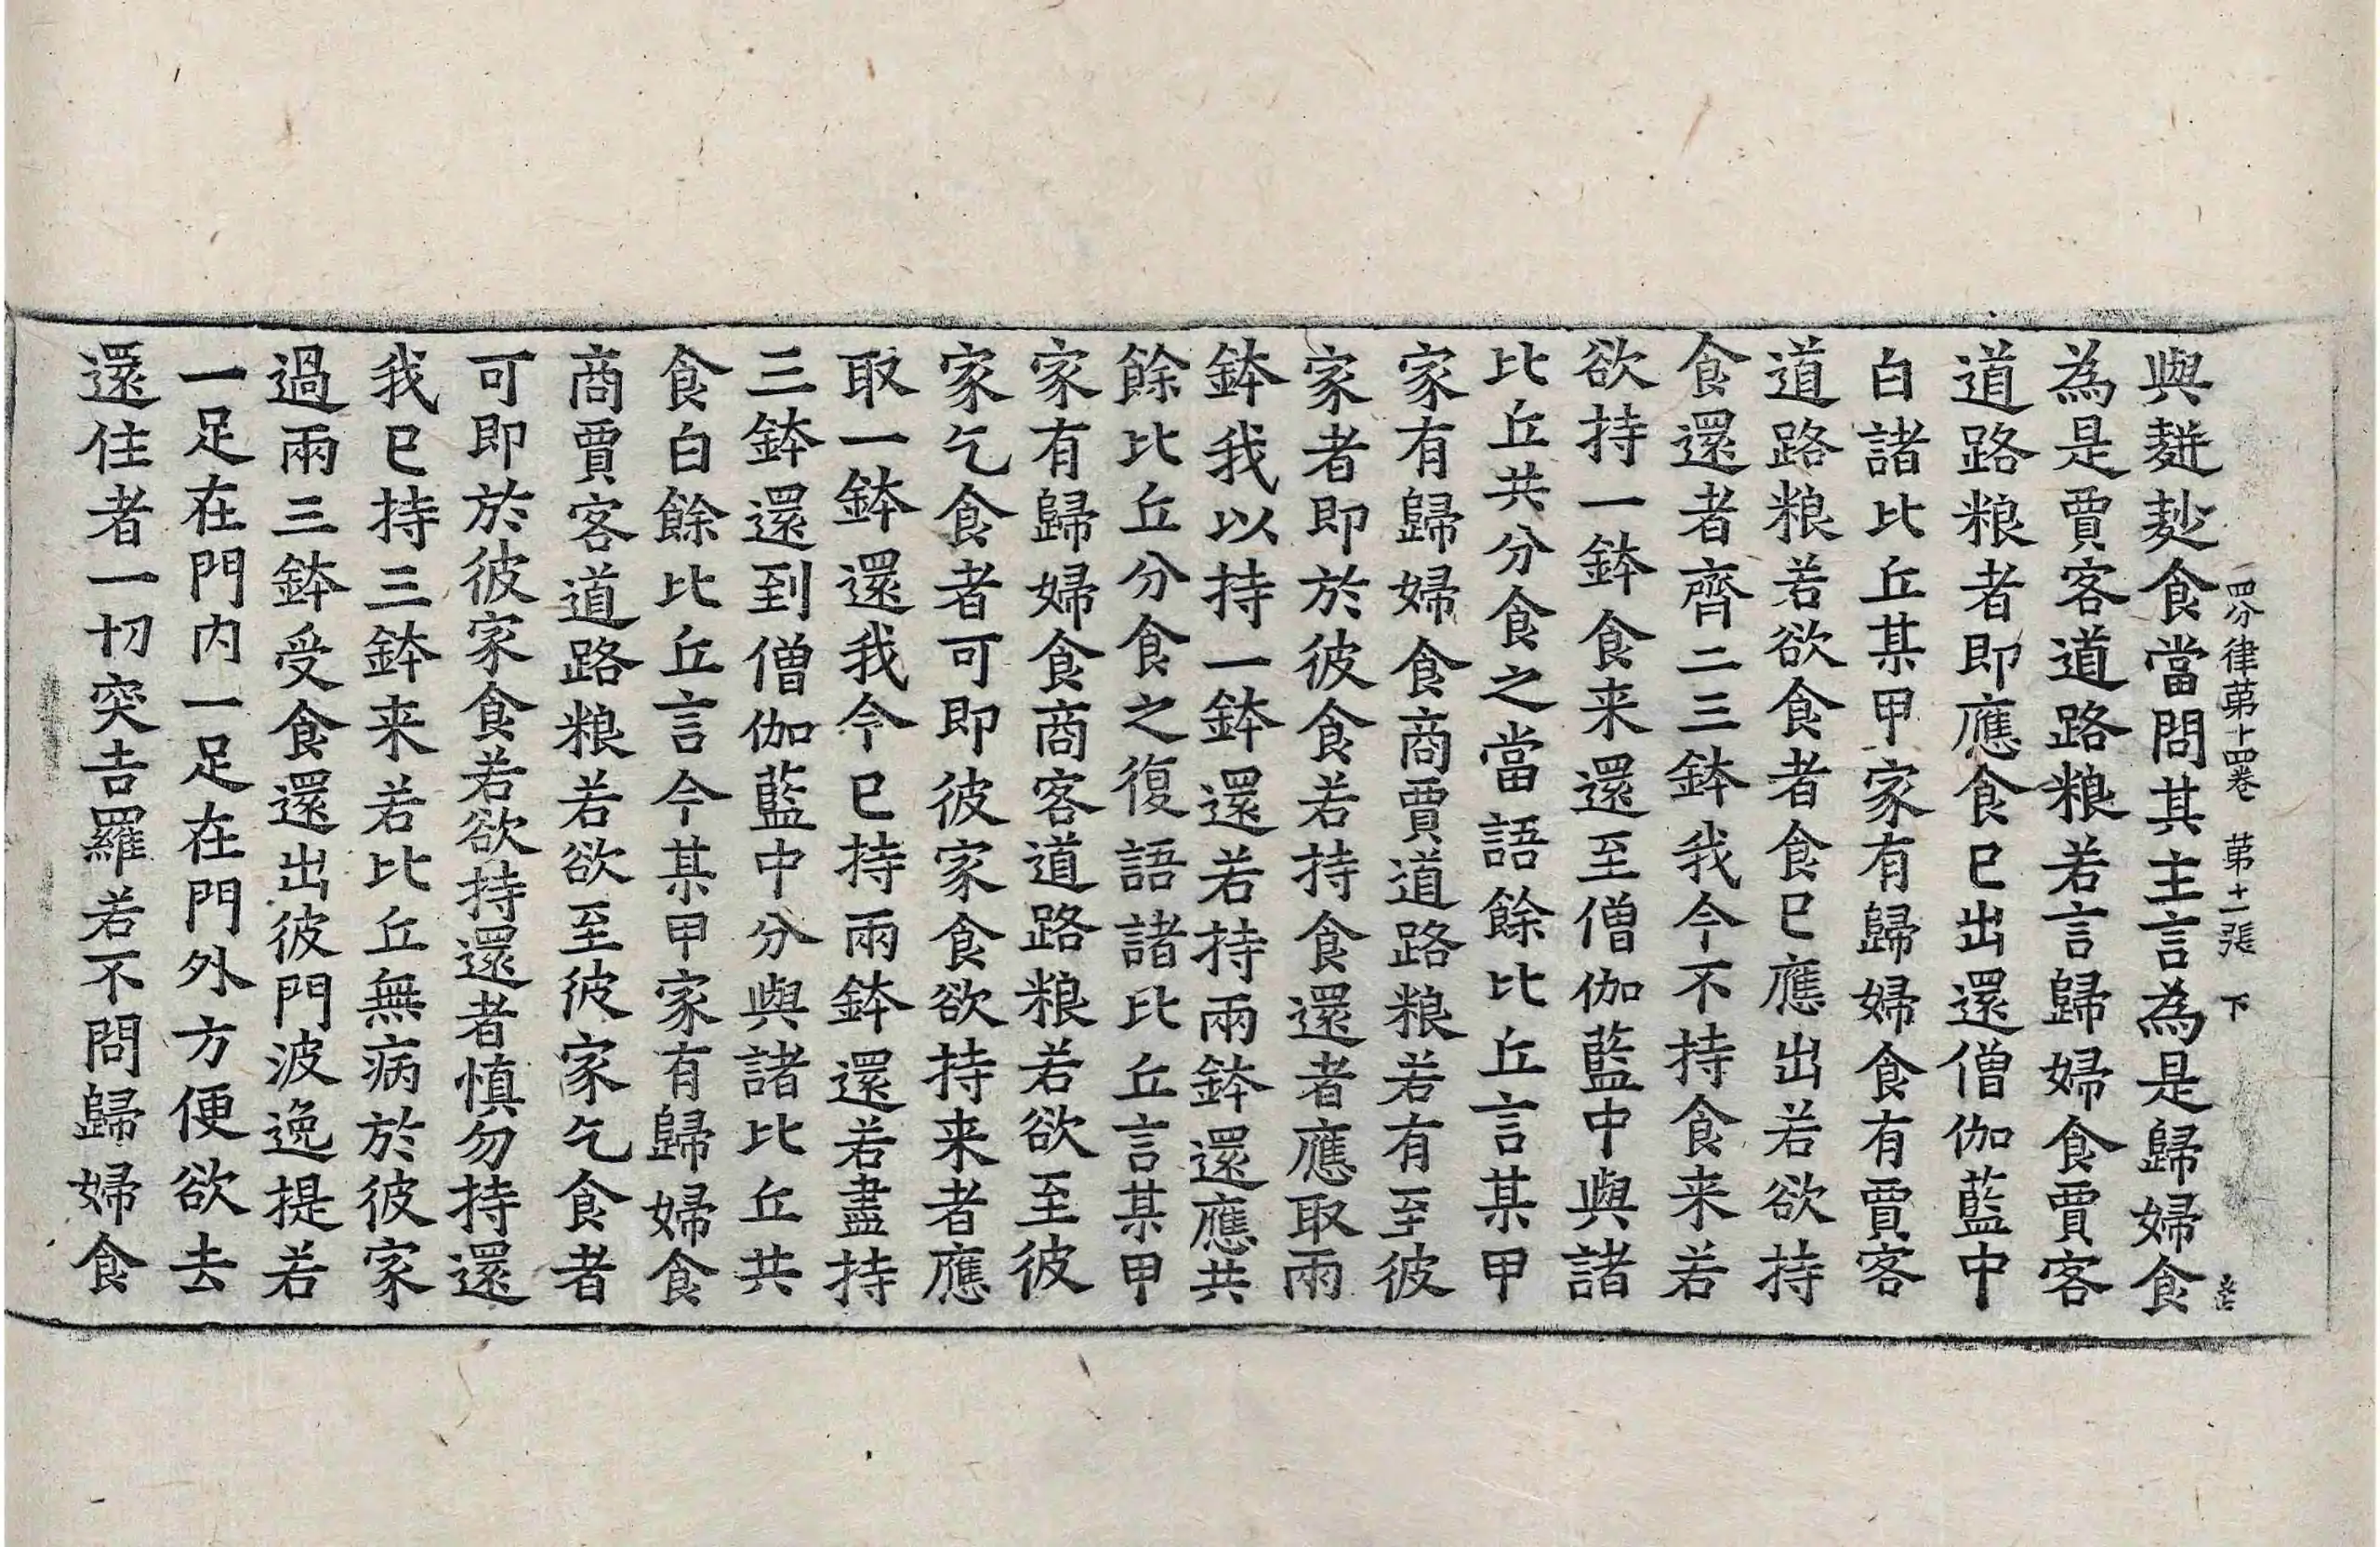 四分律苐十四卷 苐十一張 下
與䴵麨食當問其主言為是歸婦食
為是賈客道路粮若言歸婦食賈客
道路粮者即應食已出還僧伽藍中
白諸比丘某甲家有歸婦食有賈客
道路粮若欲食者食已應出若欲持
食還者齊二三鉢我今不持食来若
欲持一鉢食来還至僧伽藍中與諸
比丘共分食之當語餘比丘言某甲
家有歸婦食商賈道路粮若有至彼
家者即於彼食若持食還者應取兩
鉢我以持一鉢還若持兩鉢還應共
餘比丘分食之復語諸比丘言某甲
家有歸婦食商客道路粮若欲至彼
家乞食者可即彼家食欲持来者應
取一鉢還我今已持兩鉢還若盡持
三鉢還到僧伽藍中分與諸比丘共
食白餘比丘言今某甲家有歸婦食
商賈客道路粮若欲至彼家乞食者
可即於彼家食若欲持還者慎勿持還
我已持三鉢来若比丘無病於彼家
過兩三鉢受食還出彼門波逸提若
一足在門内一足在門外方便欲去
還住者一切突吉羅若不問歸婦食